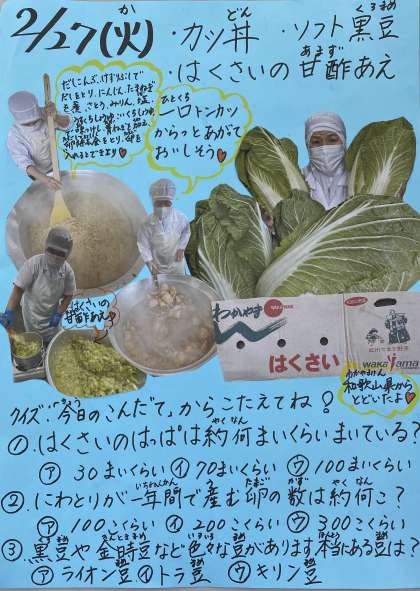 2/27(火)
か
・カツ丼
どん
・ソフト黒豆
くろまめ
・はくさいの甘酢あえ
あまず
だしこんぶ、けずりぶしで
だしをとり、にんじん、たまねぎ
を煮、さとう、みりん、塩、
入れるとできより♥
ひとくち
一口トンカツ
からっとあがて
おいしそう♥
はくさいの
甘酢あえ
わかやま
はくさい
wakayama
わかやまけん
和歌山県から
とどいたよ♥
クイズ:「今日のこんだて」からこたえてね!
①.はくさいのはっぱは約何まいくらいまいている?
やく なん
㋐ 30まいくらい ㋑ 70まいくらい ㋒ 100まいくらい
②.にわとりが一年間で産む卵の数は約何こ?
いちねんかん う たまご かず やく なん
㋐ 100こくらい ㋑ 200こくらい ㋒ 300こくらい
③.黒豆や金時豆など色々な豆があります本当にある豆は?
㋐ ライオン豆 ㋑ トラ豆 ㋒ キリン豆